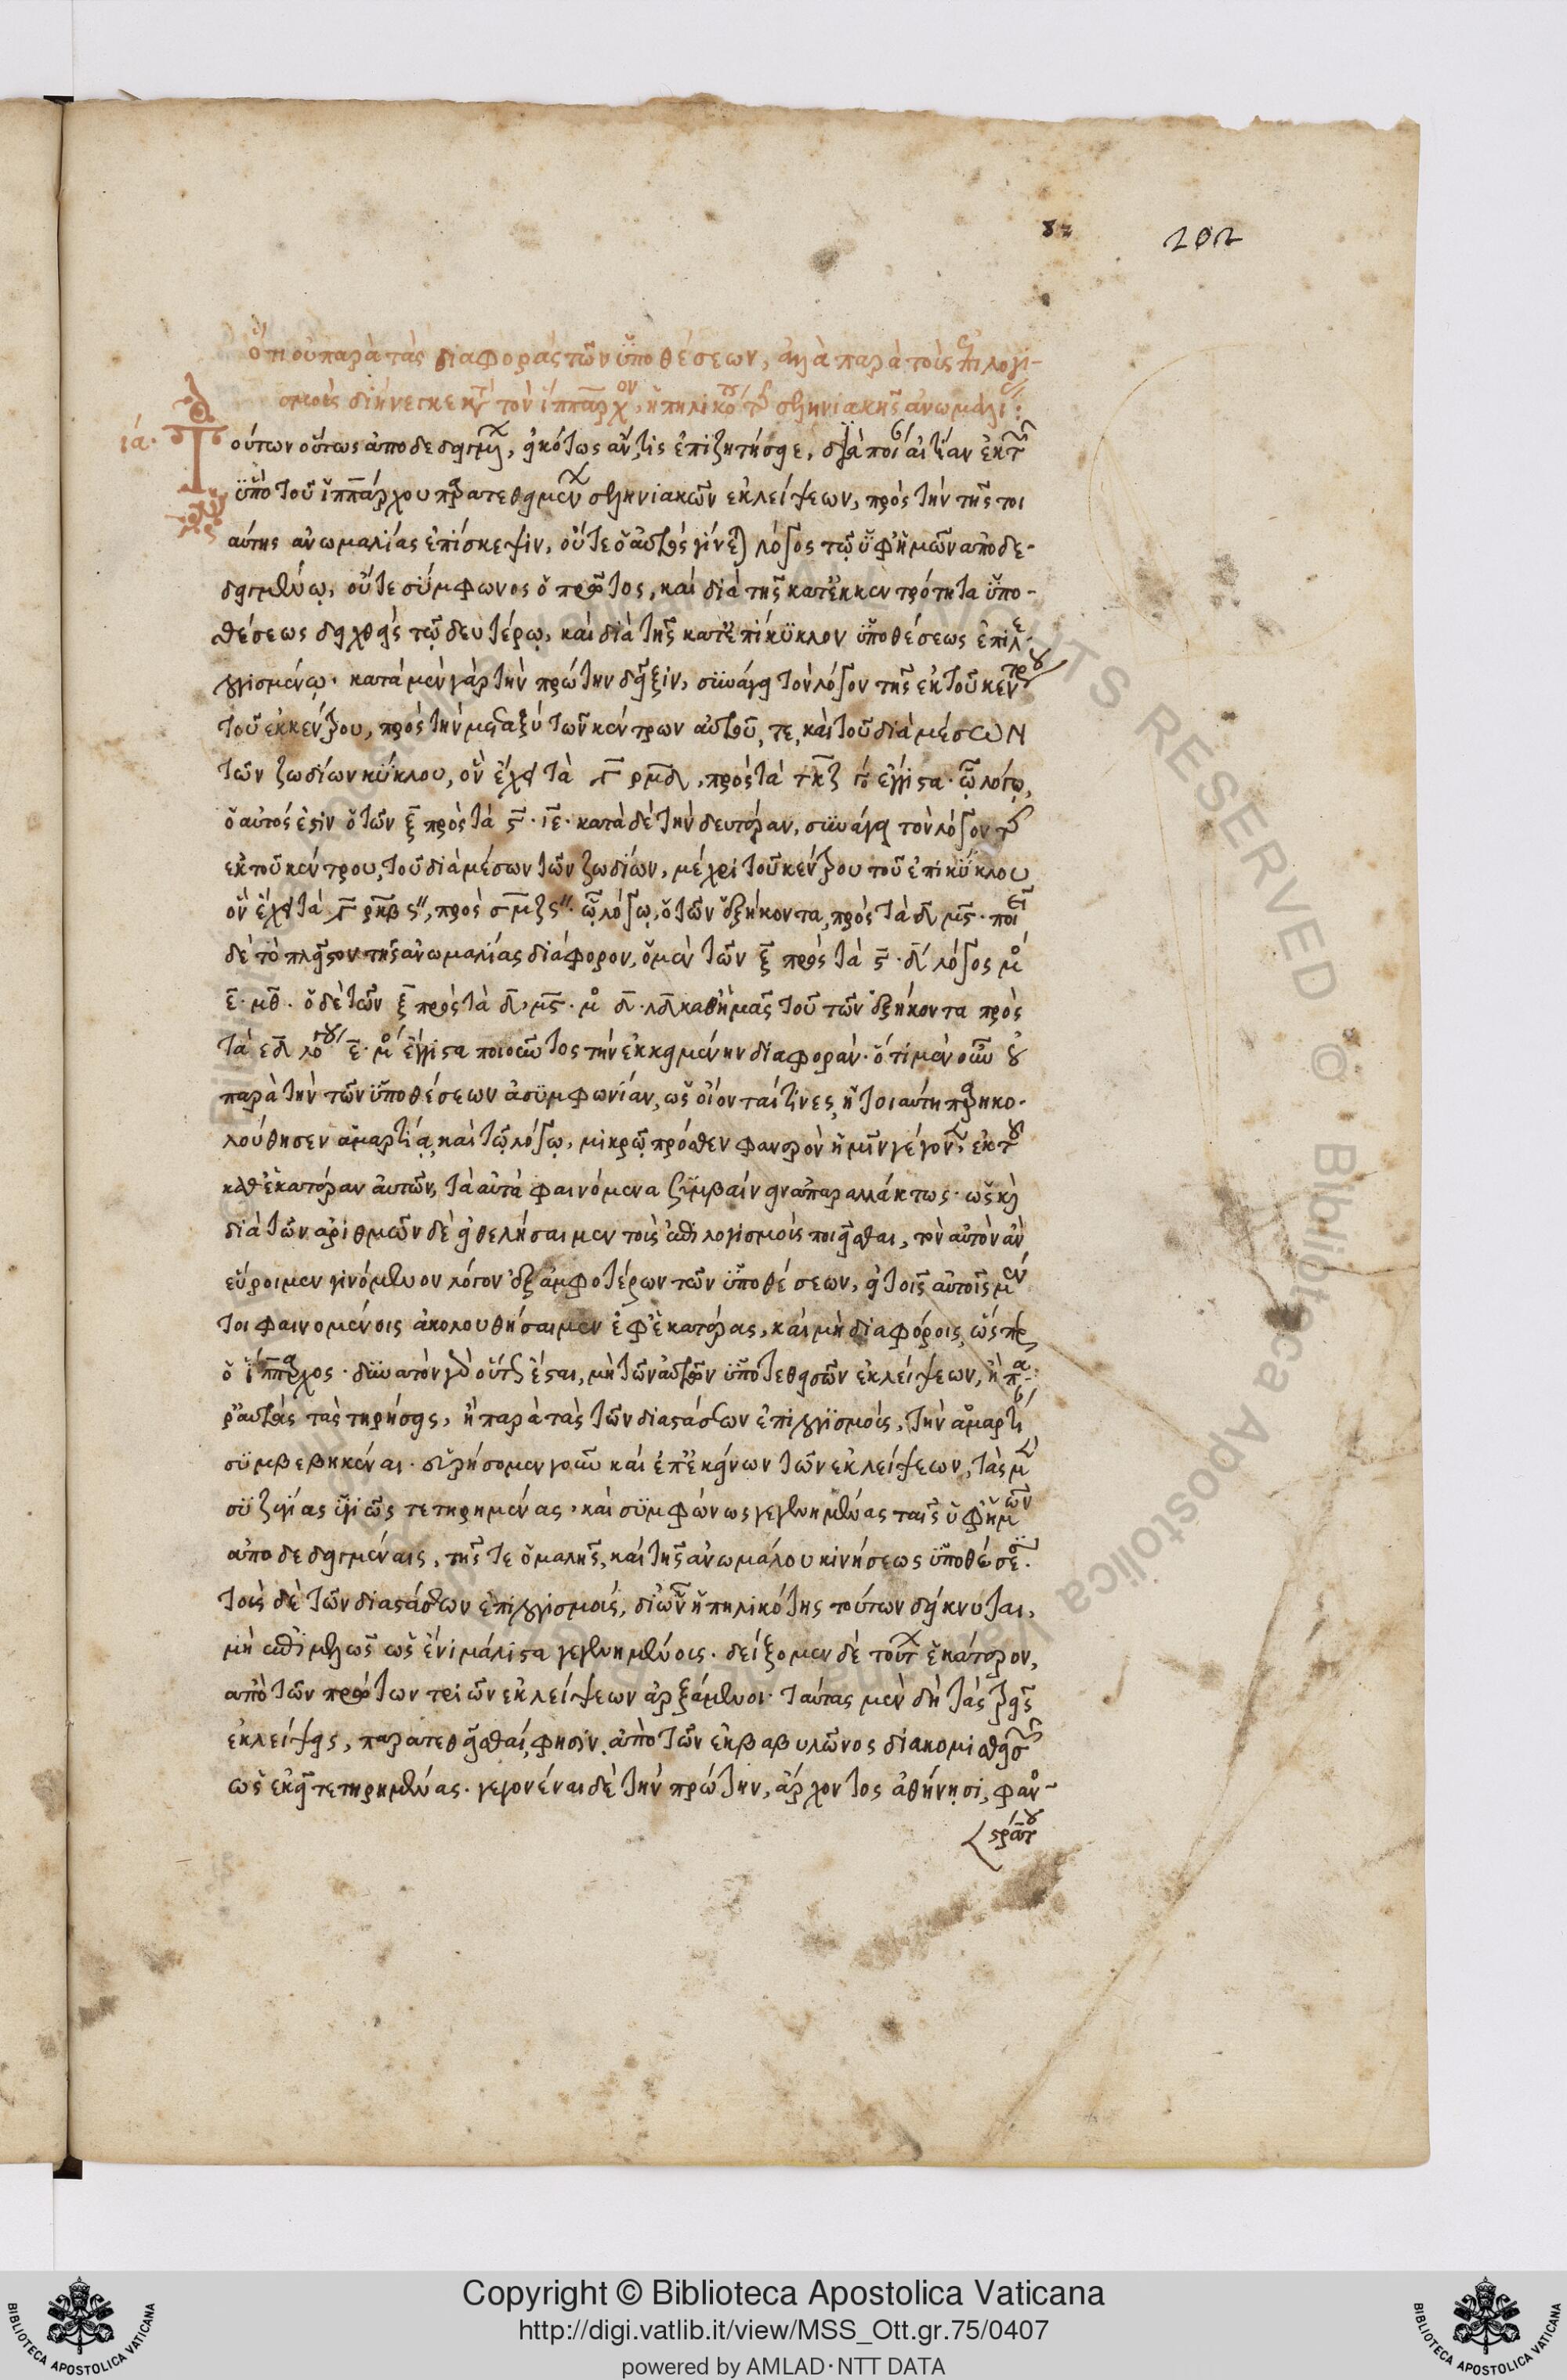 82 202
ὅτι οὐ παρὰ τὰς διαφορὰς τῶν ὑποθέσεων, ἀλλὰ παρὰ τοὺς ἐπιλογι-
σμοὺς διήνεγκε κατὰ τὸν ἵππαρχον, ἡ πηλικότης τῆς σεληνιακῆς ἀνωμαλίας:
ια. Τούτων οὕτως ἀποδεδειγμένων, εἰκότως ἄν τις ἐπιζητήσειε, διὰ ποίαν αἰτίαν ἐκ τῶν
ὑπὸ τοῦ ἱππάρχου παρατεθειμένων σεληνιακῶν ἐκλείψεων, πρὸς τὴν τῆς τοι
αύτης ἀνωμαλίας ἐπίσκεψιν, οὔτε ὁ αὐτὸς γίνεται λόγος τῷ ὑφ' ἡμῶν ἀποδε-
δειγμένῳ, οὔτε σύμφωνος ὁ πρῶτος, καὶ διὰ τῆς κατ' ἐκκεντρότητα ὑπο-
θέσεως δειχθεὶς τῷ δευτέρῳ, καὶ διὰ τῆς κατ' ἐπίκυκλον ὑποθέσεως ἐπιλε-
λογισμένῳ. κατὰ μὲν γὰρ τὴν πρώτην δεῖξιν, συνάγει τὸν λόγον τῆς ἐκ τοῦ κέντρου
τοῦ ἐκκέντρου, πρὸς τὴν μεταξὺ τῶν κέντρων αὐτοῦ, τε, καὶ τοῦ διὰ μέσων
τῶν ζωδίων κύκλου, ὃν ἔχει τὰ ͵γ ρμδ, πρὸς τὰ τκζ ἔγγιστα. ᾧ λόγῳ,
ὁ αὐτός ἐστιν ὁ τῶν ξ πρὸς τὰ ς. ιε. κατὰ δὲ τὴν δευτέραν, συνάγει τὸν λόγον τῆς
ἐκ τοῦ κέντρου, τοῦ διὰ μέσων τῶν ζωδίων, μέχρι τοῦ κέντρου τοῦ ἐπικύκλου
ὃν ἔχει τὰ ͵γ ρκβ ς'', πρὸς σμζ ς''. ᾧ λόγῳ, ὁ τῶν ἑξήκοντα, πρὸς τὰ δ μς. ποιεῖ
δὲ τὸ πλεῖστον τῆς ἀνωμαλίας διάφορον, ὁ μὲν τῶν ξ πρὸς τὰ ς. δ' λόγος μο
ε. μθ. ὁ δὲ τῶν ξ πρὸς τὰ δ, μς. μο δ. λδ καθ' ἡμᾶς τοῦ τῶν ἑξήκοντα πρὸς
τὰ ε δ λόγου ε. μο ἔγγιστα ποιοῦντος τὴν ἐκκειμένην διαφοράν. ὅτι μὲν οὖν οὐ
παρὰ τὴν τῶν ὑποθέσεων ἀσυμφωνίαν, ὡς οἴονταί τινες, ἡ τοιαύτη παρηκο-
λούθησεν ἁμαρτία, καὶ τῷ λόγῳ, μικρῷ πρόσθεν φανερὸν ἡμῖν γέγονεν, ἐκ τοῦ
καθ' ἑκατέραν αὐτῶν, τὰ αὐτὰ φαινόμενα συμβαίνειν ἀπαραλλάκτως. ὡς καὶ
διὰ τῶν ἀριθμῶν δὲ εἰ θελήσαιμεν τοὺς ἐπιλογισμοὺς ποιεῖσθαι, τὸν αὐτὸν ἂν
εὕροιμεν γινόμενον λόγον ἐξ ἀμφοτέρων τῶν ὑποθέσεων, εἰ τοῖς αὐτοῖς μέν
τοι φαινομένοις ἀκολουθήσαιμεν ἐφ' ἑκατέρας, καὶ μὴ διαφόροις, ὥσπερ
ὁ ἵππαρχος. δυνατὸν γὰρ οὕτως ἔσται, μὴ τῶν αὐτῶν ὑποτεθεισῶν ἐκλείψεων, ἢ πα-
ρ' αὐτὰς τὰς τηρήσεις, ἢ παρὰ τὰς τῶν διαστάσεων ἐπιλογισμοὺς, τὴν ἁμαρτίαν
συμβεβηκέναι. εὑρήσομεν γοῦν καὶ ἐπ' ἐκείνων τῶν ἐκλείψεων, τὰς μὲν
συζυγίας ὑγιῶς τετηρημένας, καὶ συμφώνως γεγενημένας ταῖς ὑφ' ἡμῶν
ἀποδεδειγμέναις, τῆς τε ὁμαλῆς, καὶ τῆς ἀνωμάλου κινήσεως ὑποθέσεσιν.
τοὺς δὲ τῶν διαστάσεων ἐπιλογισμοὺς, δι' ὧν ἡ πηλικότης τούτων δείκνυται,
μὴ ἐπιμελῶς ὡς ἔνι μάλιστα γεγενημένους. δείξομεν δὲ τούτων ἑκάτερον,
ἀπὸ τῶν πρώτων τριῶν ἐκλείψεων ἀρξάμενοι. ταύτας μὲν δὴ τὰς τρεῖς
ἐκλείψεις, παρατεθεῖσθαί, φησιν, ἀπὸ τῶν ἐκ βαβυλῶνος διακομισθεισῶν
ὡς ἐκεῖ τετηρημένας. γεγονέναι δὲ τὴν πρώτην, ἄρχοντος ἀθήνησι, φανο-
στράτου
Copyright © Biblioteca Apostolica Vaticana
http://digi.vatlib.it/view/MSS_Ott.gr.75/0407
powered by AMLAD·NTT DATA